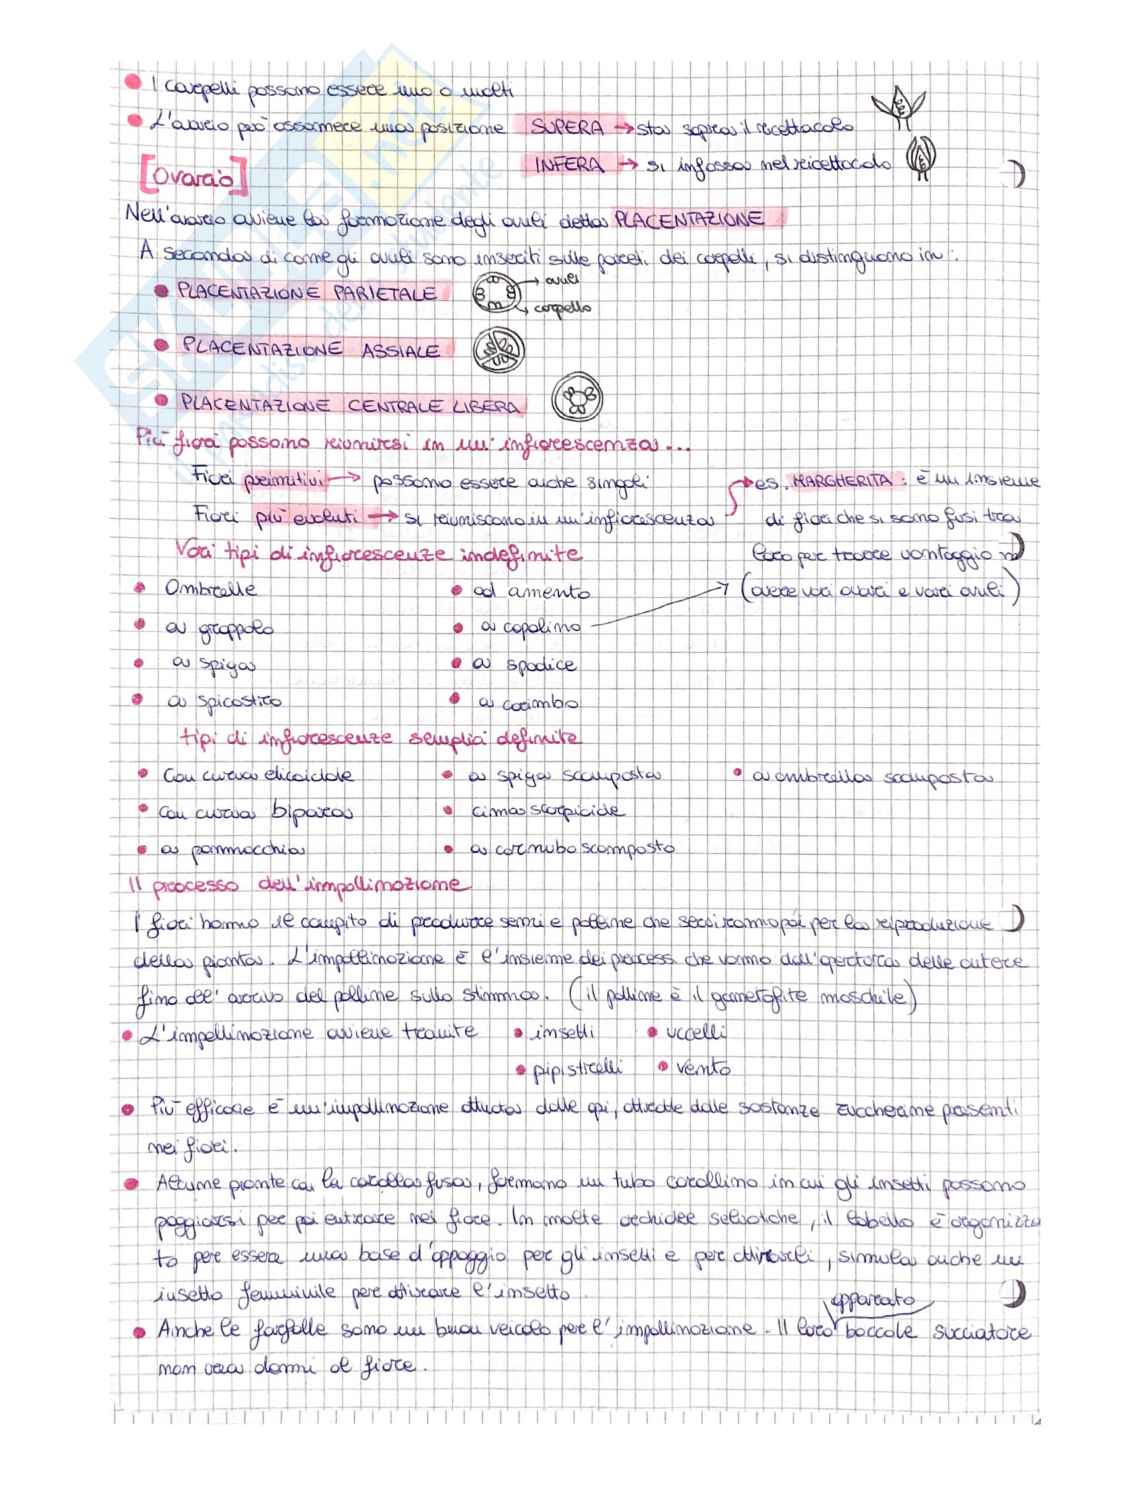 I carpelli possono essere uno o molti
L'ovario può assumere una posizione SUPERA → sta sopra il ricettacolo
INFERA → si infossa nel ricettacolo
[Ovario]
Nell'ovario avviene la formazione degli ovuli detta PLACENTAZIONE
A seconda di come gli ovuli sono inseriti sulle pareti dei carpelli, si distinguono in:
PLACENTAZIONE PARIETALE → ovuli
→ carpello
PLACENTAZIONE ASSIALE
PLACENTAZIONE CENTRALE LIBERA
Più fiori possono riunirsi in un'infiorescenza...
Fiori primitivi → possono essere anche singoli → es. MARGHERITA: è un insieme
Fiori più evoluti → si riuniscono in un'infiorescenza di fiori che si sono fusi tra
Vari tipi di infiorescenze indefinite loro per trarre vantaggio
• Ombrelle • ad amento → (avere vari ovari e vari ovuli)
• a grappolo • a capolino
• a spiga • a spadice
• a spicastro • a corimbo
tipi di infiorescenze semplici definite
• Con curva elicoidale • a spiga scomposta • a ombrella scomposta
• con curva bipara • cima scorpioide
• a pannocchia • a corimbo scomposto
Il processo dell'impollinazione
I fiori hanno il compito di produrre semi e polline che serviranno poi per la riproduzione
della pianta. L'impollinazione è l'insieme dei processi che vanno dall'apertura delle antere
fino all'arrivo del polline sullo stimma. (il polline è il gametofite maschile)
• L'impollinazione avviene tramite • insetti • uccelli
• pipistrelli • vento
• Più efficace è un'impollinazione attuata dalle api, attratte dalle sostanze zuccherine presenti
nei fiori.
• Alcune piante con la corolla fusa, formano un tubo corollino in cui gli insetti possono
poggiarsi per poi entrare nel fiore. In molte orchidee selvatiche, il labello è organizza
to per essere una base d'appoggio per gli insetti e per attirarli, simula anche un
insetto femminile per attirare l'insetto.
apparato
• Anche le farfalle sono un buon veicolo per l'impollinazione. Il loro boccale succiatore
non reca danni al fiore.